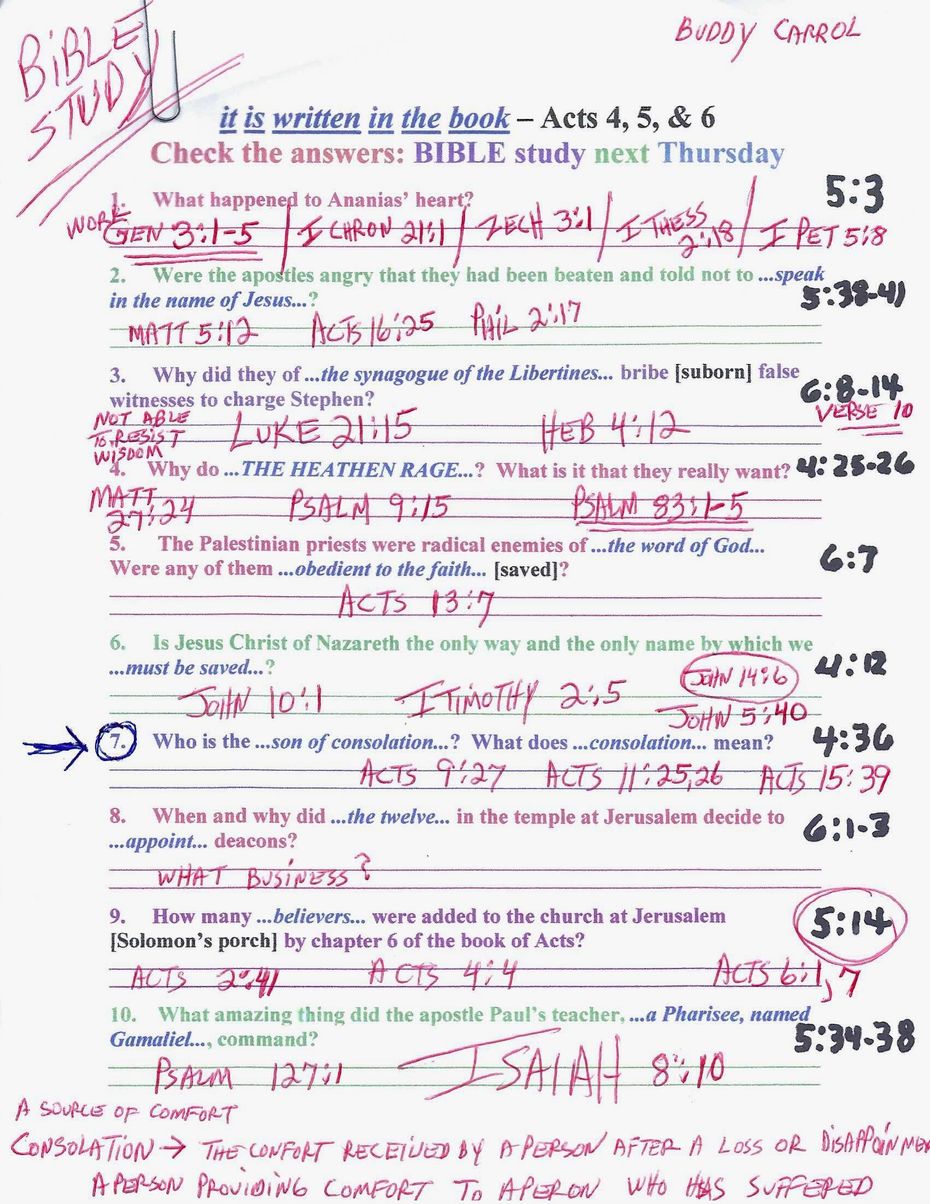 BUDDY CARROL
BIBLE
STUDY
it is written in the book – Acts 4, 5, & 6
Check the answers: BIBLE study next Thursday
1. What happened to Ananias’ heart? 5:3
WORK
GEN 3:1-5 / I CHRON 21:1 / ZECH 3:1 / I THESS 2:18 / I PET 5:8
2. Were the apostles angry that they had been beaten and told not to ...speak
in the name of Jesus...? 5:38-41
MATT 5:12 ACTS 16:25 PHIL 2:17
3. Why did they of ...the synagogue of the Libertines... bribe [suborn] false
witnesses to charge Stephen? 6:8-14
VERSE 10
NOT ABLE
TO RESIST
WISDOM
LUKE 21:15 HEB 4:12
4. Why do ...THE HEATHEN RAGE...? What is it that they really want? 4:25-26
MATT
27:24 PSALM 9:15 PSALM 83:1-5
5. The Palestinian priests were radical enemies of ...the word of God...
Were any of them ...obedient to the faith... [saved]? 6:7
ACTS 13:7
6. Is Jesus Christ of Nazareth the only way and the only name by which we
...must be saved...? 4:12
JOHN 14:6
JOHN 10:1 I TIMOTHY 2:5
JOHN 5:40
7. Who is the ...son of consolation...? What does ...consolation... mean? 4:36
ACTS 9:27 ACTS 11:25,26 ACTS 15:39
8. When and why did ...the twelve... in the temple at Jerusalem decide to
...appoint... deacons? 6:1-3
WHAT BUSINESS?
9. How many ...believers... were added to the church at Jerusalem
[Solomon’s porch] by chapter 6 of the book of Acts? 5:14
ACTS 2:41 ACTS 4:4 ACTS 6:1,7
10. What amazing thing did the apostle Paul’s teacher, ...a Pharisee, named
Gamaliel..., command? 5:34-38
PSALM 127:1 ISAIAH 8:10
A SOURCE OF COMFORT
CONSOLATION → THE CONFORT RECEIVED BY A PERSON AFTER A LOSS OR DISAPPOINMEN
A PERSON PROVIDING COMFORT TO A PERON WHO HAS SUFFERED